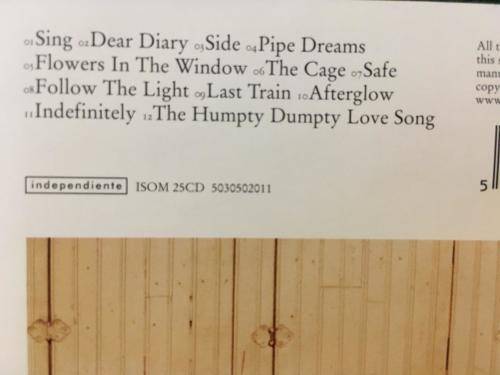 01 Sing 02 Dear Diary 03 Side 04 Pipe Dreams
05 Flowers In The Window 06 The Cage 07 Safe
08 Follow The Light 09 Last Train 10 Afterglow
11 Indefinitely 12 The Humpty Dumpty Love Song
independiente ISOM 25CD 5030502011
All t
this s
mann
copy
www
5